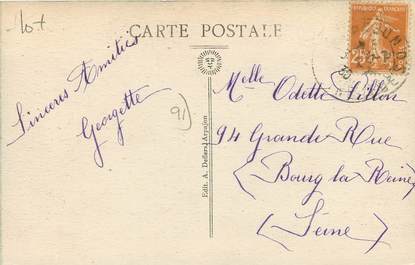 10+
CARTE POSTALE
Sincères Amitiés
Georgette
91)
Edit. A. Dellers Arpajon
Melle Odette Sillon
94 Grande Rue
(Bourg la Reine)
(Seine)
25c